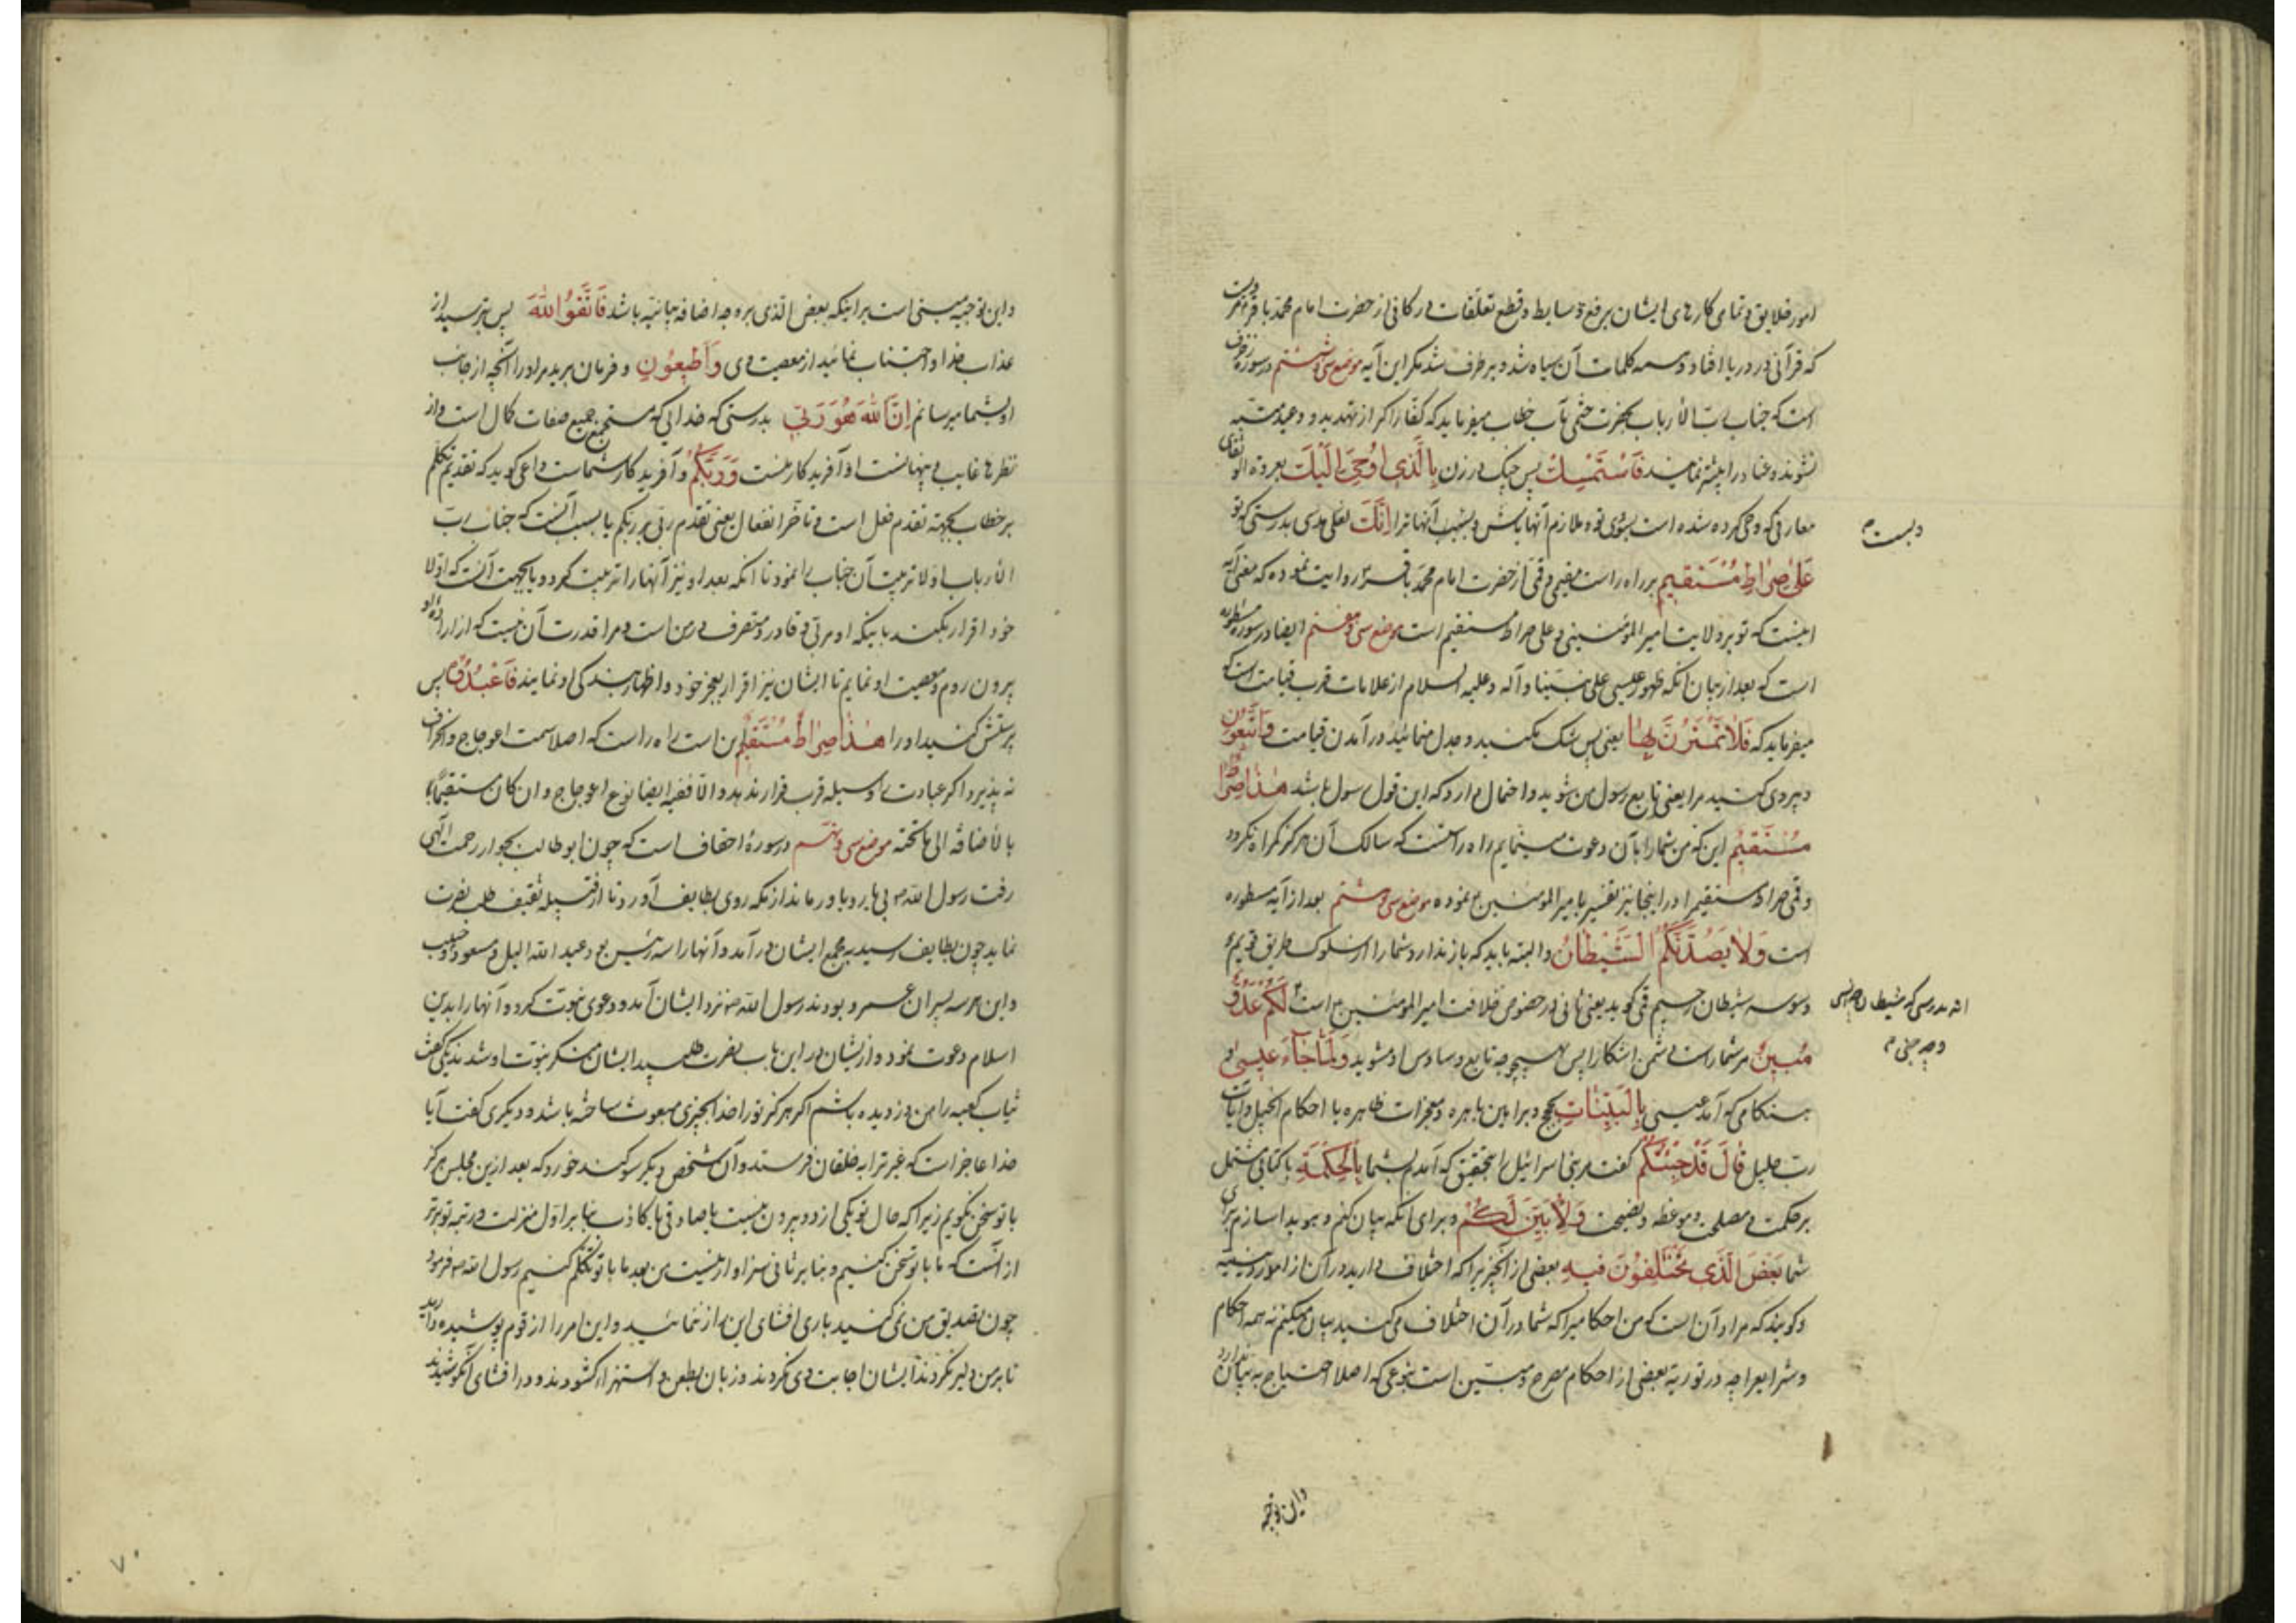 امور خلایق و تمامی کارهای ایشان برفع وسایط و قطع تعلقات در کافی از حضرت امام محمد باقر مرویست
که قرآنی در دریا افتاد و همه کلمات آن سیاه شد و برطرف شد مگر این آیه موضع سی و ششم در سوره زخرف
است که جناب رب الارباب بحضرت ختمی مآب خطاب میفرماید که کفار را که از تهدید و وعید متنبه
نشوند و عناد را پیشه نمایند فَاسْتَمْسِكْ پس چنک در زن بِالَّذِي أُوحِيَ إِلَيْكَ بعروة الوثقای
معارفی که وحی کرده شده است بسوی تو و ملازم آنها باش إِنَّكَ بدرستی که تو
دیست م
عَلىٰ صِرَاطٍ مُسْتَقِيمٍ بر راه راست مقیمی و قمی از حضرت امام محمد باقر روایت نموده که معنی آیه
اینست که تو بر ولایت امیر المؤمنینی و علی صراط مستقیم است موضع سی و هفتم ایضا در سوره مسطوره
است که بعد از بیان آنکه ظهور عیسی علی نبینا و آله و علیه السلام از علامات قرب قیامت است
میفرماید که فَلَا تَمْتَرُنَّ بِهَا یعنی پس شک مکنید و جدل منمائید در آمدن قیامت وَاتَّبِعُونِ
و پیروی کنید مرا یعنی تابع رسول من شوید و احتمال دارد که این قول رسول باشد هٰذَا صِرَاطٌ
مُسْتَقِيمٌ این که من شما را بآن دعوت مینمایم راه راستست که سالک آن هرکز کمراه نکردد
و قمی صراط مستقیم را در اینجا نیز تفسیر بامیر المؤمنین م نموده موضع سی و هشتم بعد از آیه مسطوره
است وَلَا يَصُدَّنَّكُمُ الشَّيْطَانُ و البته باید که باز ندارد شما را از سلوک طریق قویم
وسوسه شیطان رجیم قمی کوید یعنی ثانی در خصوص خلافت امیر المؤمنین م إِنَّهُ لَكُمْ عَدُوٌّ
انه بدرستی که شیطان چه انسی
و چه جنی م
مُبِينٌ مر شما راست دشمن آشکارا پس بهیچوجه تابع وساوس او مشوید وَلَمَّا جَاءَ عِيسىٰ و
هنکامی که آمد عیسی بِالْبَيِّنَاتِ بحجج و براهین باهره و معجزات ظاهره یا احکام انجیل و آیات
رب جلیل قَالَ قَدْ جِئْتُكُمْ گفت مر بنی اسرائیل را بتحقیق که آمدم بشما بِالْحِكْمَةِ با کتابی مشتمل
بر حکمت و مصلحت و موعظه و نصیحت وَلِأُبَيِّنَ لَكُمْ و برای آنکه بیان کنم و هویدا سازم برای
شما بَعْضَ الَّذِي تَخْتَلِفُونَ فِيهِ بعضی از آنچیزیرا که اختلاف دارید در آن از امور دینیه
و کویند که مراد آن است که من احکامیرا که شما در آن اختلاف می کنید بیان میکنم نه همه احکام
و شرایع را چه در توریة بعضی از احکام مصرح و مبین است بنوعی که اصلا احتیاج به بیان ندارد
واین توجیه
واین توجیه مبنی است بر اینکه بعض الذی بروجه اضافه بیانیه باشد فَاتَّقُوا اللّٰهَ پس بترسید از
عذاب خدا و اجتناب نمائید از معصیت وی وَأَطِيعُونِ و فرمان برید مرا در آنچه از جانب
او بشما میرسانم إِنَّ اللّٰهَ هُوَ رَبِّي بدرستی که خدایی که مستجمع جمیع صفات کمال است و از
نظرها غایب و پنهانست او آفریدکار منست وَرَبُّكُمْ و آفریدکار شماست داعی کوید که تقدیم تکلم
بر خطاب بجهة تقدم فعل است و تاخر انفعال یعنی تقدم ربی بر ربکم یا بسبب آنست که جناب رب
الارباب اولا تربیت آن جناب را نمود تا آنکه بعد او نیز آنها را تربیت کردد یا بجهت آنست که اولا
خود اقرار بکند باینکه او مربی و قادر و متصرف در من است و مرا قدرت آن نیست که از اراده او
بیرون روم و معصیت او نمایم تا ایشان نیز اقرار بعجز خود و اظهار بندکی او نمایند فَاعْبُدُوهُ پس
پرستش کنید او را هٰذَا صِرَاطٌ مُسْتَقِيمٌ این است راه راست که اصلا سمت اعوجاج و انحراف
نه پذیرد اکر عبادت را وسیله قرب قرار ندهد و الا ففیه ایضا نوع اعوجاج و ان کان مستقیما
بالاضافه الی ما تحته موضع سی و نهم در سورهٔ احقاف است که چون ابوطالب بجوار رحمت الهی
رفت رسول الله ص بی یار و یاور ماند از مکه روی بطایف آورد تا از قبیله ثقیف طلب نصرت
نماید چون بطایف رسید به مجمع ایشان در آمد و آنها را سه رئیس بود عبد الیل و مسعود و حبیب
واین هر سه پسران عمرو بودند رسول الله ص نزد ایشان آمد و دعوی نبوت کرده و آنها را بدین
اسلام دعوت نمود و از ایشان در این باب نصرت طلبید ایشان منکر نبوت او شدند یکی گفت
ثیاب کعبه را من دزدیده باشم اکر هرکز تو را خدا بچیزی مبعوث ساخته باشد و دیکری کفت آیا
خدا عاجز است که غیر ترا به خلقان فرستد و آن شخص دیکر سوکند خورد که بعد ازین مجلس هرکز
با تو سخن نکویم زیرا که حال تو یکی از دو بیرون نیست یا صادقی یا کاذب بنا بر اول منزلت و رتبه تو برتر
از آنست که ما با تو سخن کنیم و بنا بر ثانی سزاوار نیست من بعد ما با تو تکلم کنیم رسول الله ص فرمود
چون تصدیق من نمی کنید باری افشای این راز ننمائید و این امر را از قوم پوشیده دارید
تا بر من دلیر نکردند ایشان اجابت وی نکردند و زبان بطعن و استهزاء کشودند و در افشای آن کوشیدند
۷۰